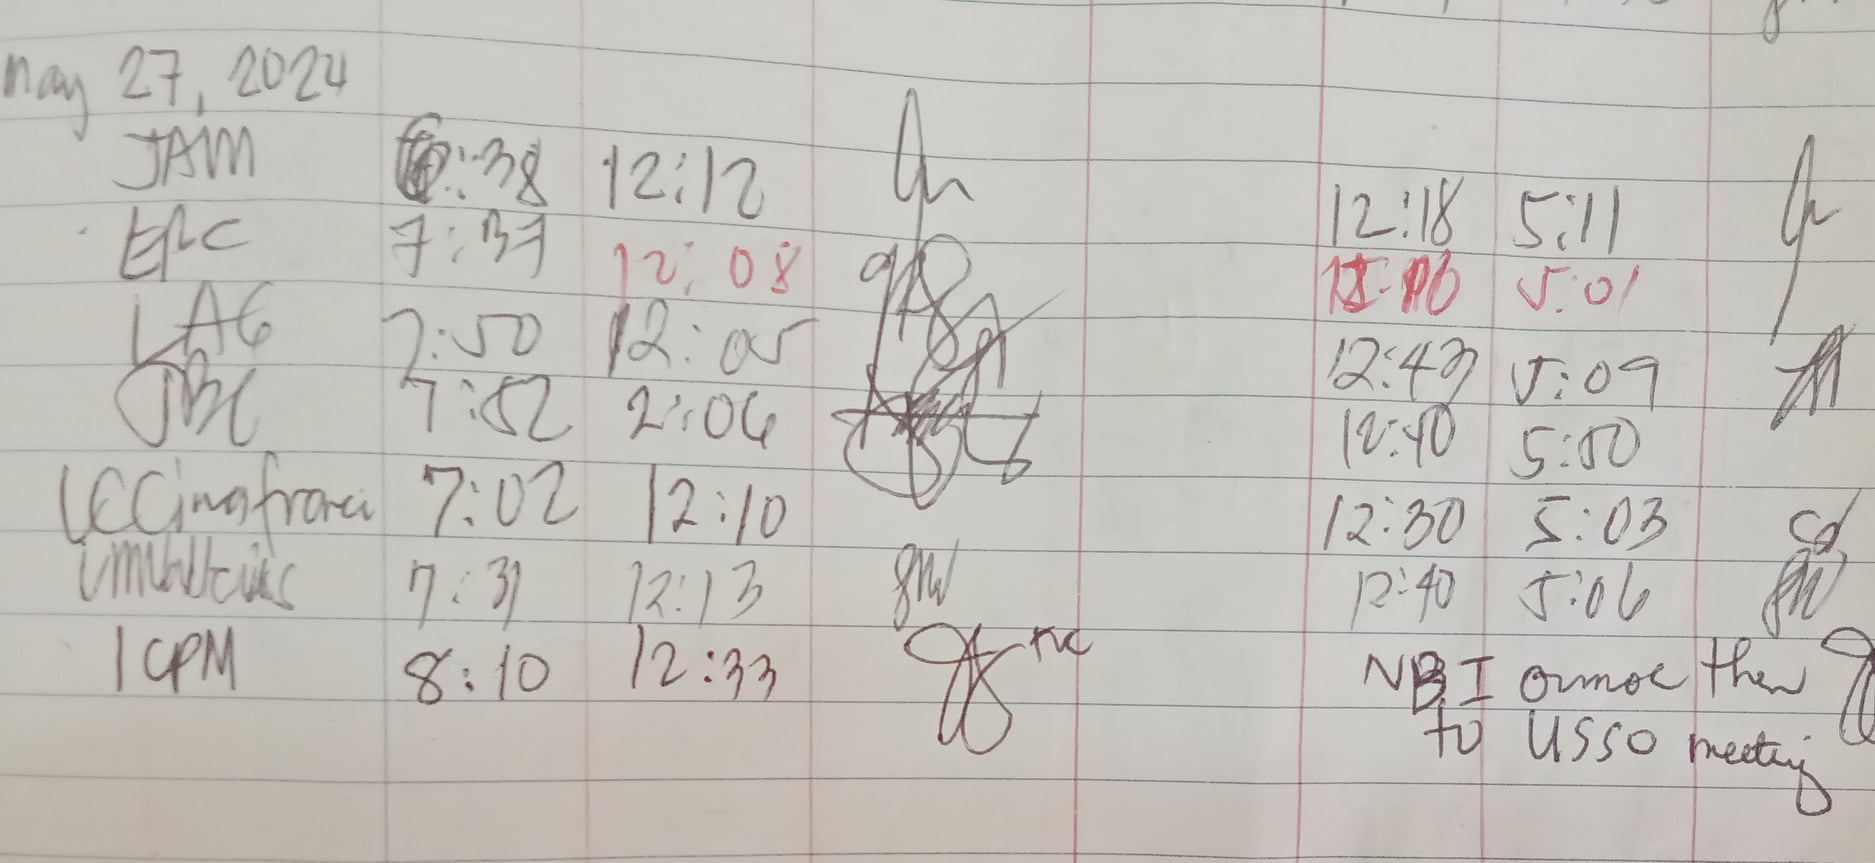 May 27, 2024
JAM :38 12:12 12:18 5:11
EPC 7:37 12:08 5:01
LAG 7:50 12:05 12:43 5:09
JBC 7:52 2:06 12:40 5:50
7:02 12:10 12:30 5:03
7:31 12:13 12:40 5:06
ICPM 8:10 12:33 NBI ormoc then
to USSO meeting